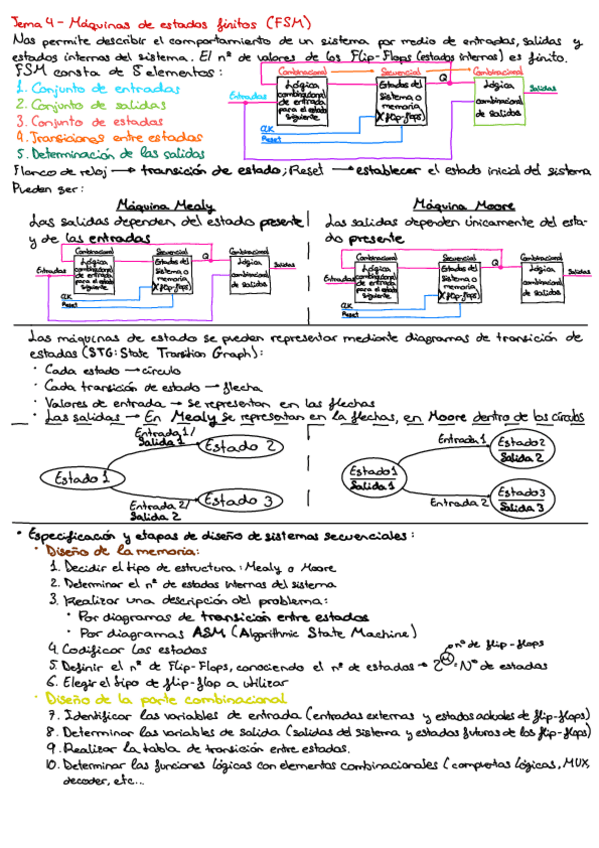 Tema 4 - Máquinas de estados finitos (FSM)
Nos permite describir el comportamiento de un sistema por medio de entradas, salidas y
estados internos del sistema. El nº de valores de los Flip-Flops (estados internos) es finito.
FSM consta de 5 elementos:
1. Conjunto de entradas
2. Conjunto de salidas
3. Conjunto de estados
4. Transiciones entre estados
5. Determinación de las salidas
Combinacional
Secuencial
Combinacional
Entradas
Lógica
combinacional
de entrada
para el estado
siguiente
Estados del
sistema o
memoria
(X flip-flops)
Q
Lógica
combinacional
de salidas
Salidas
CLK
Reset
Flanco de reloj → transición de estado; Reset → establecer el estado inicial del sistema
Pueden ser:
Máquina Mealy
Las salidas dependen del estado presente
y de las entradas
Combinacional
Secuencial
Combinacional
Entradas
Lógica
combinacional
de entrada
para el estado
siguiente
Estados del
sistema o
memoria
(X flip-flops)
Q
Lógica
combinacional
de salidas
Salidas
CLK
Reset
Máquina Moore
Las salidas dependen únicamente del esta-
do presente
Combinacional
Secuencial
Combinacional
Entradas
Lógica
combinacional
de entrada
para el estado
siguiente
Estados del
sistema o
memoria
(X flip-flops)
Q
Lógica
combinacional
de salidas
Salidas
CLK
Reset
Las máquinas de estado se pueden representar mediante diagramas de transición de
estados (STG: State Transition Graph):
· Cada estado → círculo
· Cada transición de estado → flecha
· Valores de entrada → se representan en las flechas
· Las salidas → En Mealy se representan en la flechas, en Moore dentro de los círculos
Estado 1
Entrada 1/
Salida 1
Estado 2
Entrada 2/
Salida 2
Estado 3
Estado 1
Salida 1
Entrada 1
Estado 2
Salida 2
Entrada 2
Estado 3
Salida 3
· Especificación y etapas de diseño de sistemas secuenciales:
· Diseño de la memoria:
1. Decidir el tipo de estructura: Mealy o Moore
2. Determinar el nº de estados internos del sistema
3. Realizar una descripción del problema:
· Por diagramas de transición entre estados
· Por diagramas ASM (Algorithmic State Machine)
4. Codificar los estados
5. Definir el nº de Flip-Flops, conociendo el nº de estados → 2ᵐ = Nº de estados
nº de flip-flops
6. Elegir el tipo de flip-flop a utilizar
· Diseño de la parte combinacional
7. Identificar las variables de entrada (entradas externas y estados actuales de flip-flops)
8. Determinar las variables de salida (salidas del sistema y estados futuros de los flip-flops)
9. Realizar la tabla de transición entre estados.
10. Determinar las funciones lógicas con elementos combinacionales (compuertas lógicas, MUX,
decoder, etc...